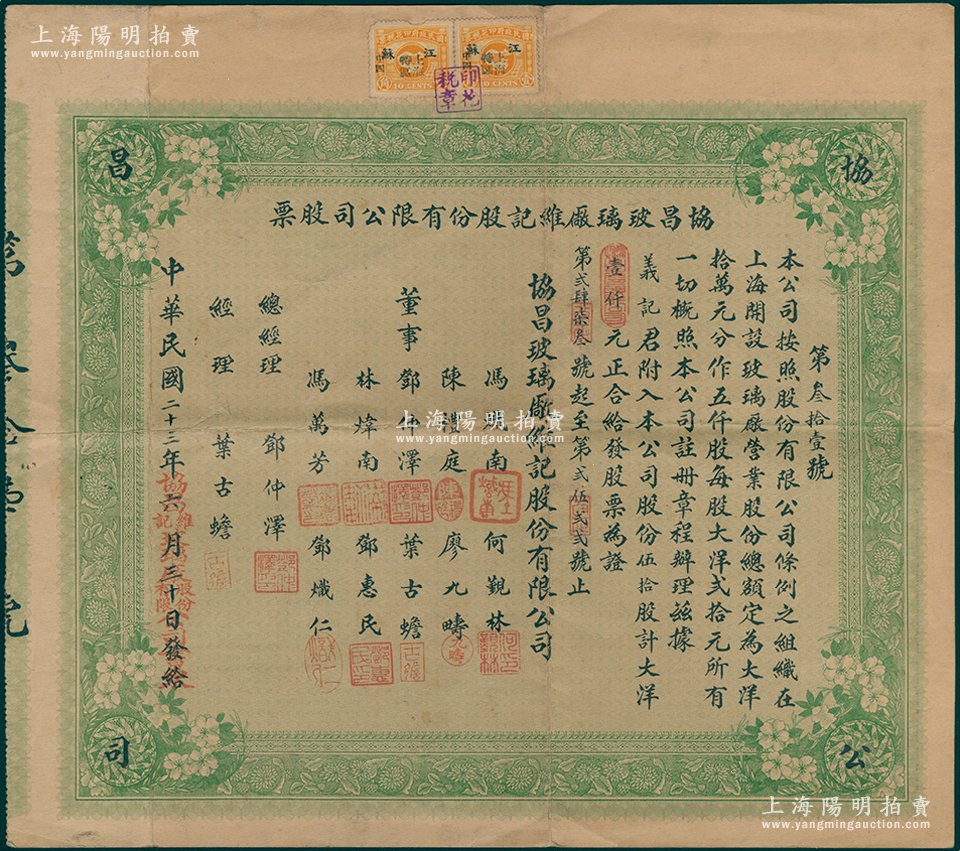 上海陽明拍賣
www.yangmingauction.com
江蘇
江蘇
10 CENTS
10 CENTS
印花稅章
協昌公司
協昌玻璃廠維記股份有限公司股票
第叁拾壹號
本公司按照股份有限公司條例之組織在
上海開設玻璃廠營業股份總額定為大洋
拾萬元分作五仟股每股大洋弍拾元所有
一切概照本公司註册章程辦理茲據
義記君附入本公司股份伍拾股計大洋
壹仟元正合給發股票為證
第弍肆柒叁號起至第弍伍弍弍號止
協昌玻璃廠維記股份有限公司
董事
馮 南 何觀林
陳禮庭 廖九疇
鄧仲澤 葉古蟾
林煒南 鄧惠民
馮萬芳 鄧熾仁
總經理 鄧仲澤
經理 葉古蟾
中華民國二十三年六月三十日發給
第叁拾壹號
上海陽明拍賣
www.yangmingauction.com
上海陽明拍賣
www.yangmingauction.com